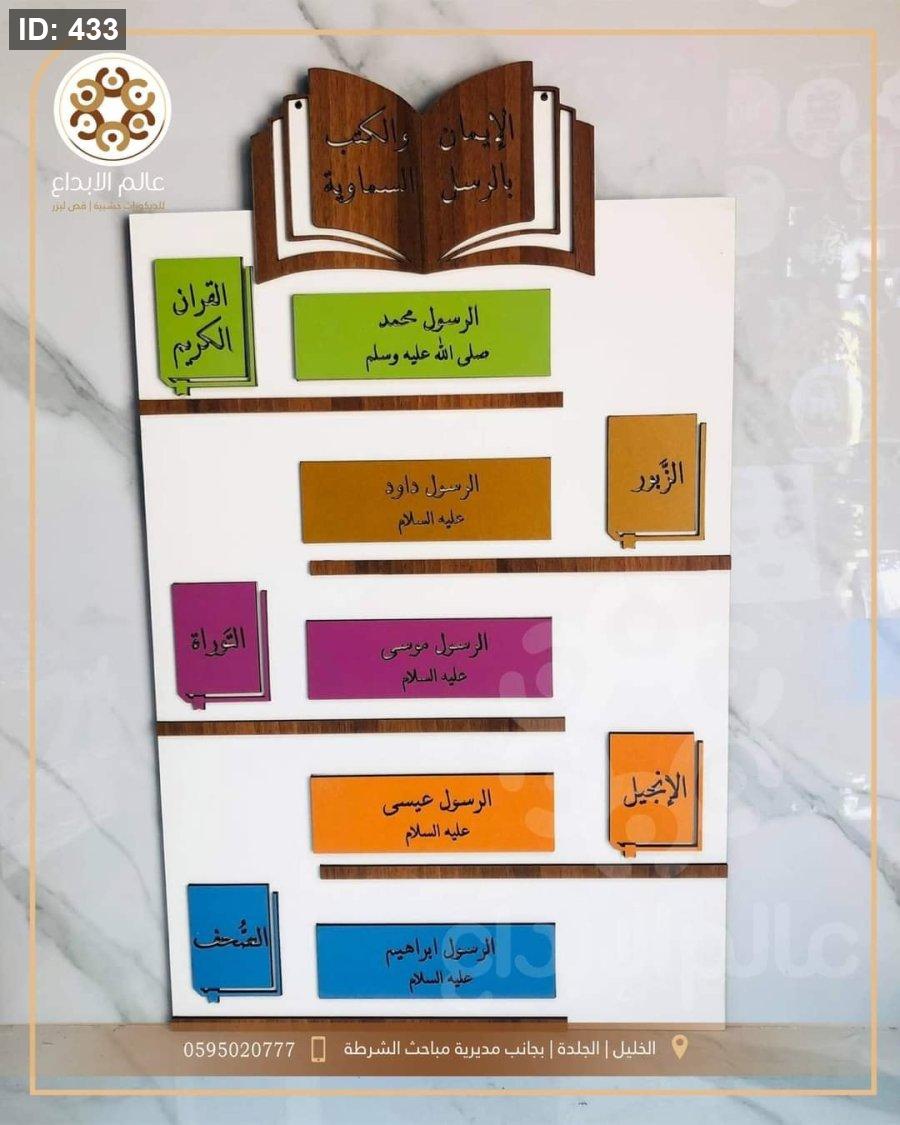 ID: 433
عالم الابداع
للديكورات خشبية | قص ليزر
الإيمان والكتب
بالرسل السماوية
القران
الكريم
الرسول محمد
صلى الله عليه وسلم
الرسول داود
عليه السلام
الزَّبور
التَوراة
الرسول موسى
عليه السلام
الرسول عيسى
عليه السلام
الإنجيل
الصُّحف
الرسول ابراهيم
عليه السلام
عالم الابداع
الخليل | الجلدة | بجانب مديرية مباحث الشرطة 0595020777